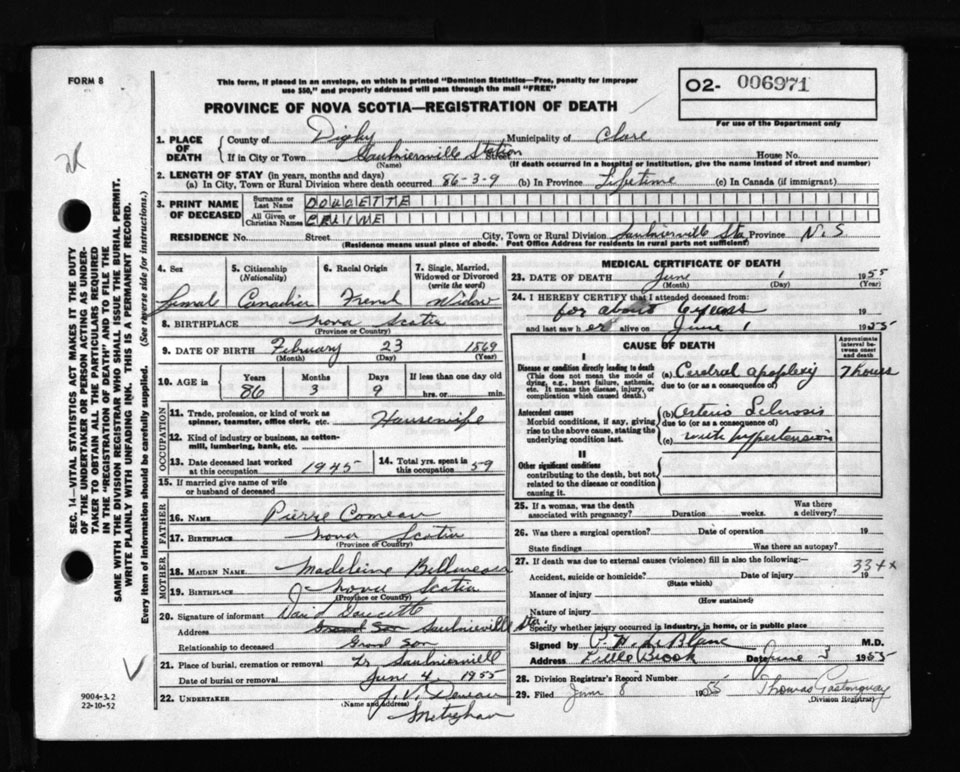 FORM 8
This form, if placed in an envelope, on which is printed "Dominion Statistics—Free, penalty for improper
use $50," and properly addressed will pass through the mail "FREE"
PROVINCE OF NOVA SCOTIA—REGISTRATION OF DEATH
O2- 006971
For use of the Department only
1. PLACE OF DEATH
County of Digby Municipality of Clare
If in City or Town Saulnierville Station House No.
(Name) (If death occurred in a hospital or institution, give the name instead of street and number)
2. LENGTH OF STAY (in years, months and days)
(a) In City, Town or Rural Division where death occurred 86-3-9 (b) In Province Lifetime (c) In Canada (if immigrant)
3. PRINT NAME OF DECEASED
Surname or Last Name DOUCETTE
All Given or Christian Names CELINE
RESIDENCE No. Street City, Town or Rural Division Saulnierville Sta Province N.S
(Residence means usual place of abode. Post Office Address for residents in rural parts not sufficient)
4. Sex Female
5. Citizenship (Nationality) Canadian
6. Racial Origin French
7. Single, Married, Widowed or Divorced (write the word) Widow
8. BIRTHPLACE Nova Scotia
(Province or Country)
9. DATE OF BIRTH February 23 1869
(Month) (Day) (Year)
10. AGE in Years 86 Months 3 Days 9 If less than one day old hrs. or min.
OCCUPATION
11. Trade, profession or kind of work as spinner, teamster, office clerk, etc. Housewife
12. Kind of industry or business, as cotton-mill, lumbering, bank, etc.
13. Date deceased last worked at this occupation 1945
14. Total yrs. spent in this occupation 59
15. If married give name of wife or husband of deceased
FATHER
16. NAME Pierre Comeau
17. BIRTHPLACE Nova Scotia
(Province or Country)
MOTHER
18. MAIDEN NAME Madeleine
19. BIRTHPLACE Nova Scotia
(Province or Country)
20. Signature of informant Doucette
Address Grand Son Saulnierville Sta
Relationship to deceased Grand Son
21. Place of burial, cremation or removal Saulnierville
Date of burial or removal June 4, 1955
22. UNDERTAKER J. V.
(Name and address)
Meteghan
MEDICAL CERTIFICATE OF DEATH
23. DATE OF DEATH June 1 1955
(Month) (Day) (Year)
24. I HEREBY CERTIFY that I attended deceased from:
for about 6 years
and last saw h er alive on June 1 1955
CAUSE OF DEATH
Approximate interval between onset and death
I
Disease or condition directly leading to death
(This does not mean the mode of dying, e.g., heart failure, asthenia, etc. It means the disease, injury, or complication which caused death.)
(a) Cerebral apoplexy 7 hours
due to (or as a consequence of)
Antecedent causes
Morbid conditions, if any, giving rise to the above cause, stating the underlying condition last.
(b) Arterio Sclerosis
due to (or as a consequence of)
(c) with hypertension
II
Other significant conditions
contributing to the death, but not related to the disease or condition causing it.
25. If a woman, was the death associated with pregnancy? Duration weeks. Was there a delivery?
26. Was there a surgical operation? Date of operation 19
State findings Was there an autopsy?
27. If death was due to external causes (violence) fill in also the following:
334x
Accident, suicide or homicide? Date of injury 19
(State which)
Manner of injury
(How sustained)
Nature of injury
Specify whether injury occurred in industry, in home, or in public place
Signed by P. H. LeBlanc M.D.
Address Little Brook Date June 3 1955
28. Division Registrar's Record Number
29. Filed June 8 1955 Thomas
(Division Registrar)
SEC. 14—VITAL STATISTICS ACT MAKES IT THE DUTY
OF THE UNDERTAKER OR PERSON ACTING AS UNDER-
TAKER TO OBTAIN ALL THE PARTICULARS REQUIRED
IN THE "REGISTRATION OF DEATH" AND TO FILE THE
SAME WITH THE DIVISION REGISTRAR WHO SHALL ISSUE THE BURIAL PERMIT.
WRITE PLAINLY WITH UNFADING INK. THIS IS A PERMANENT RECORD.
Every item of Information should be carefully supplied. (See reverse side for instructions.)
9004-3.2
22-10-52